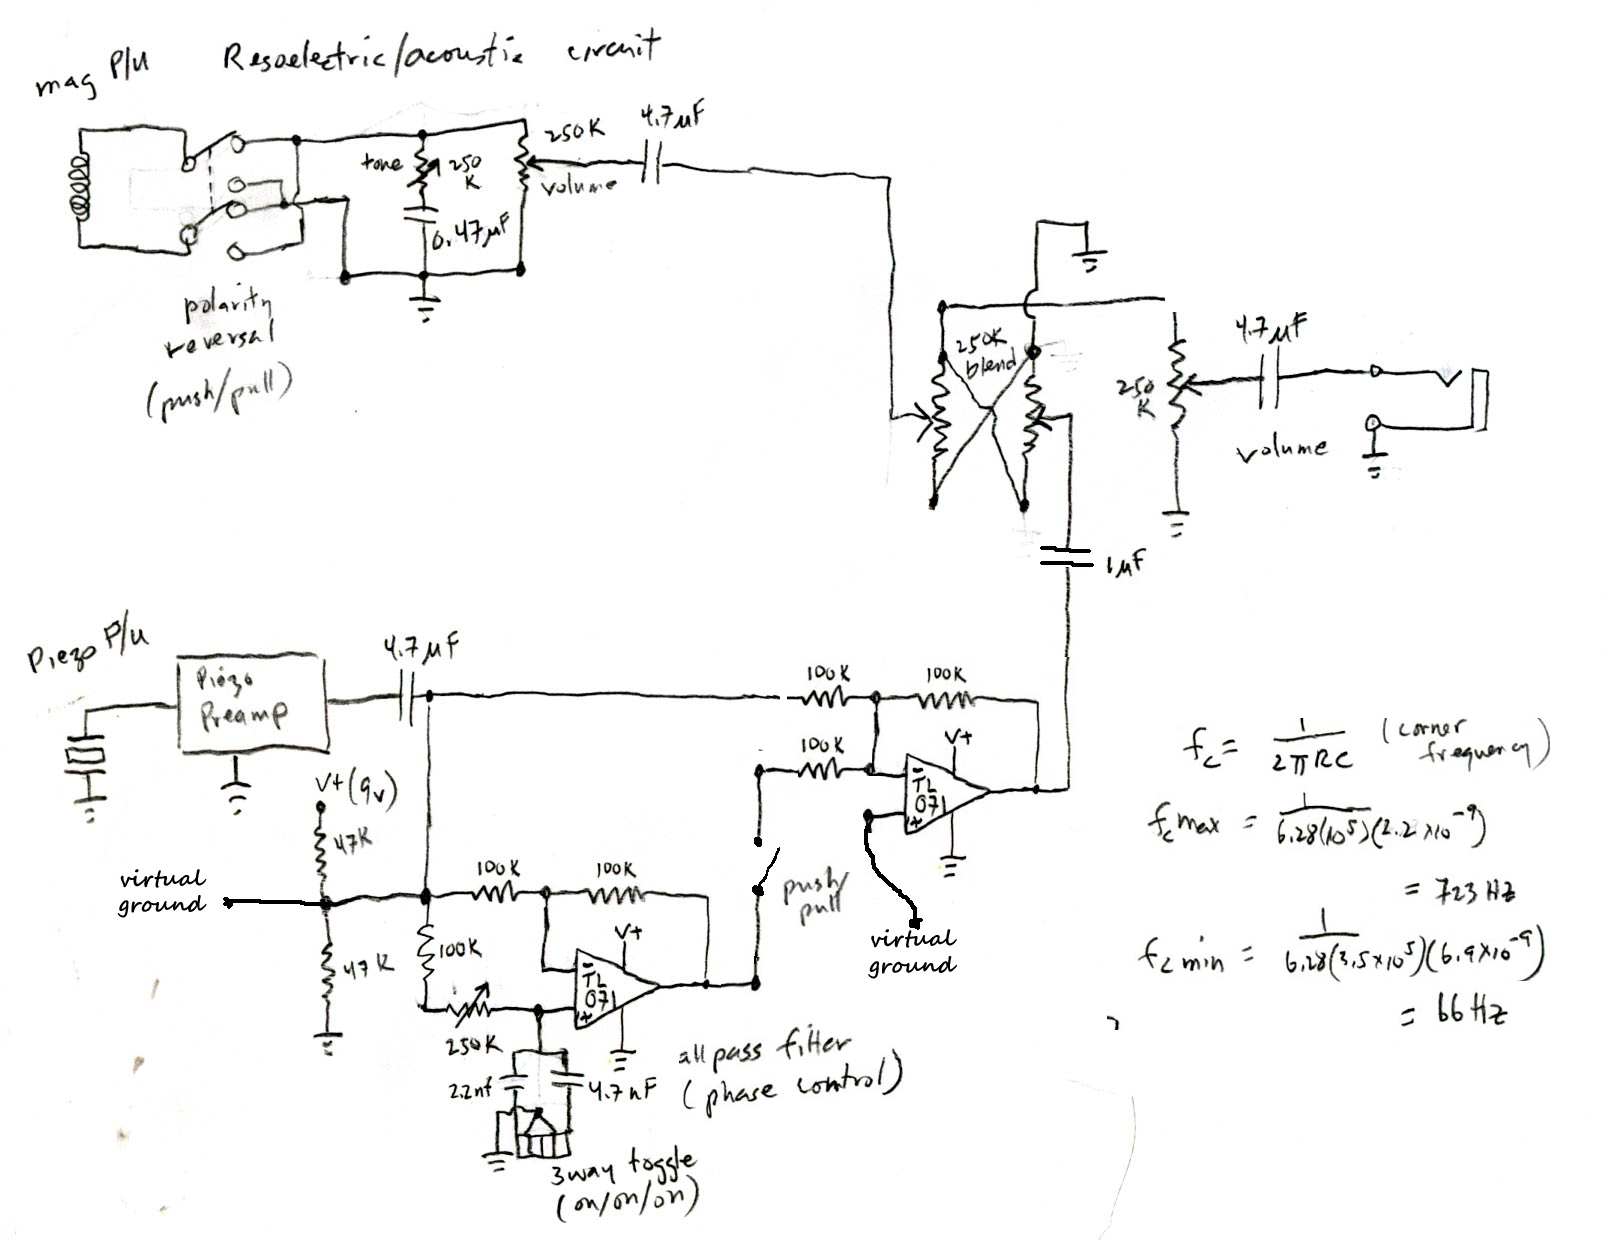 mag P/U Resoelectric/acoustic circuit
4.7μF
250K
tone 250
K
volume
0.47μF
polarity
reversal
(push/pull)
250K
blend
4.7μF
250
K
volume
1μF
Piezo P/U
4.7μF
Piezo
Preamp
100K 100K
100K
V+
-
TL
071
+
V+(9v)
47K
virtual
ground
100K 100K
push/
pull
virtual
ground
47K
100K
V+
-
TL
071
+
250K
all pass filter
(phase control)
2.2nf 4.7nF
3way toggle
(on/on/on)
fc = 1/2πRC (corner
frequency)
fc max = 1/6.28(10⁵)(2.2x10⁻⁹)
= 723 Hz
fc min = 1/6.28(3.5x10⁵)(6.9x10⁻⁹)
= 66 Hz